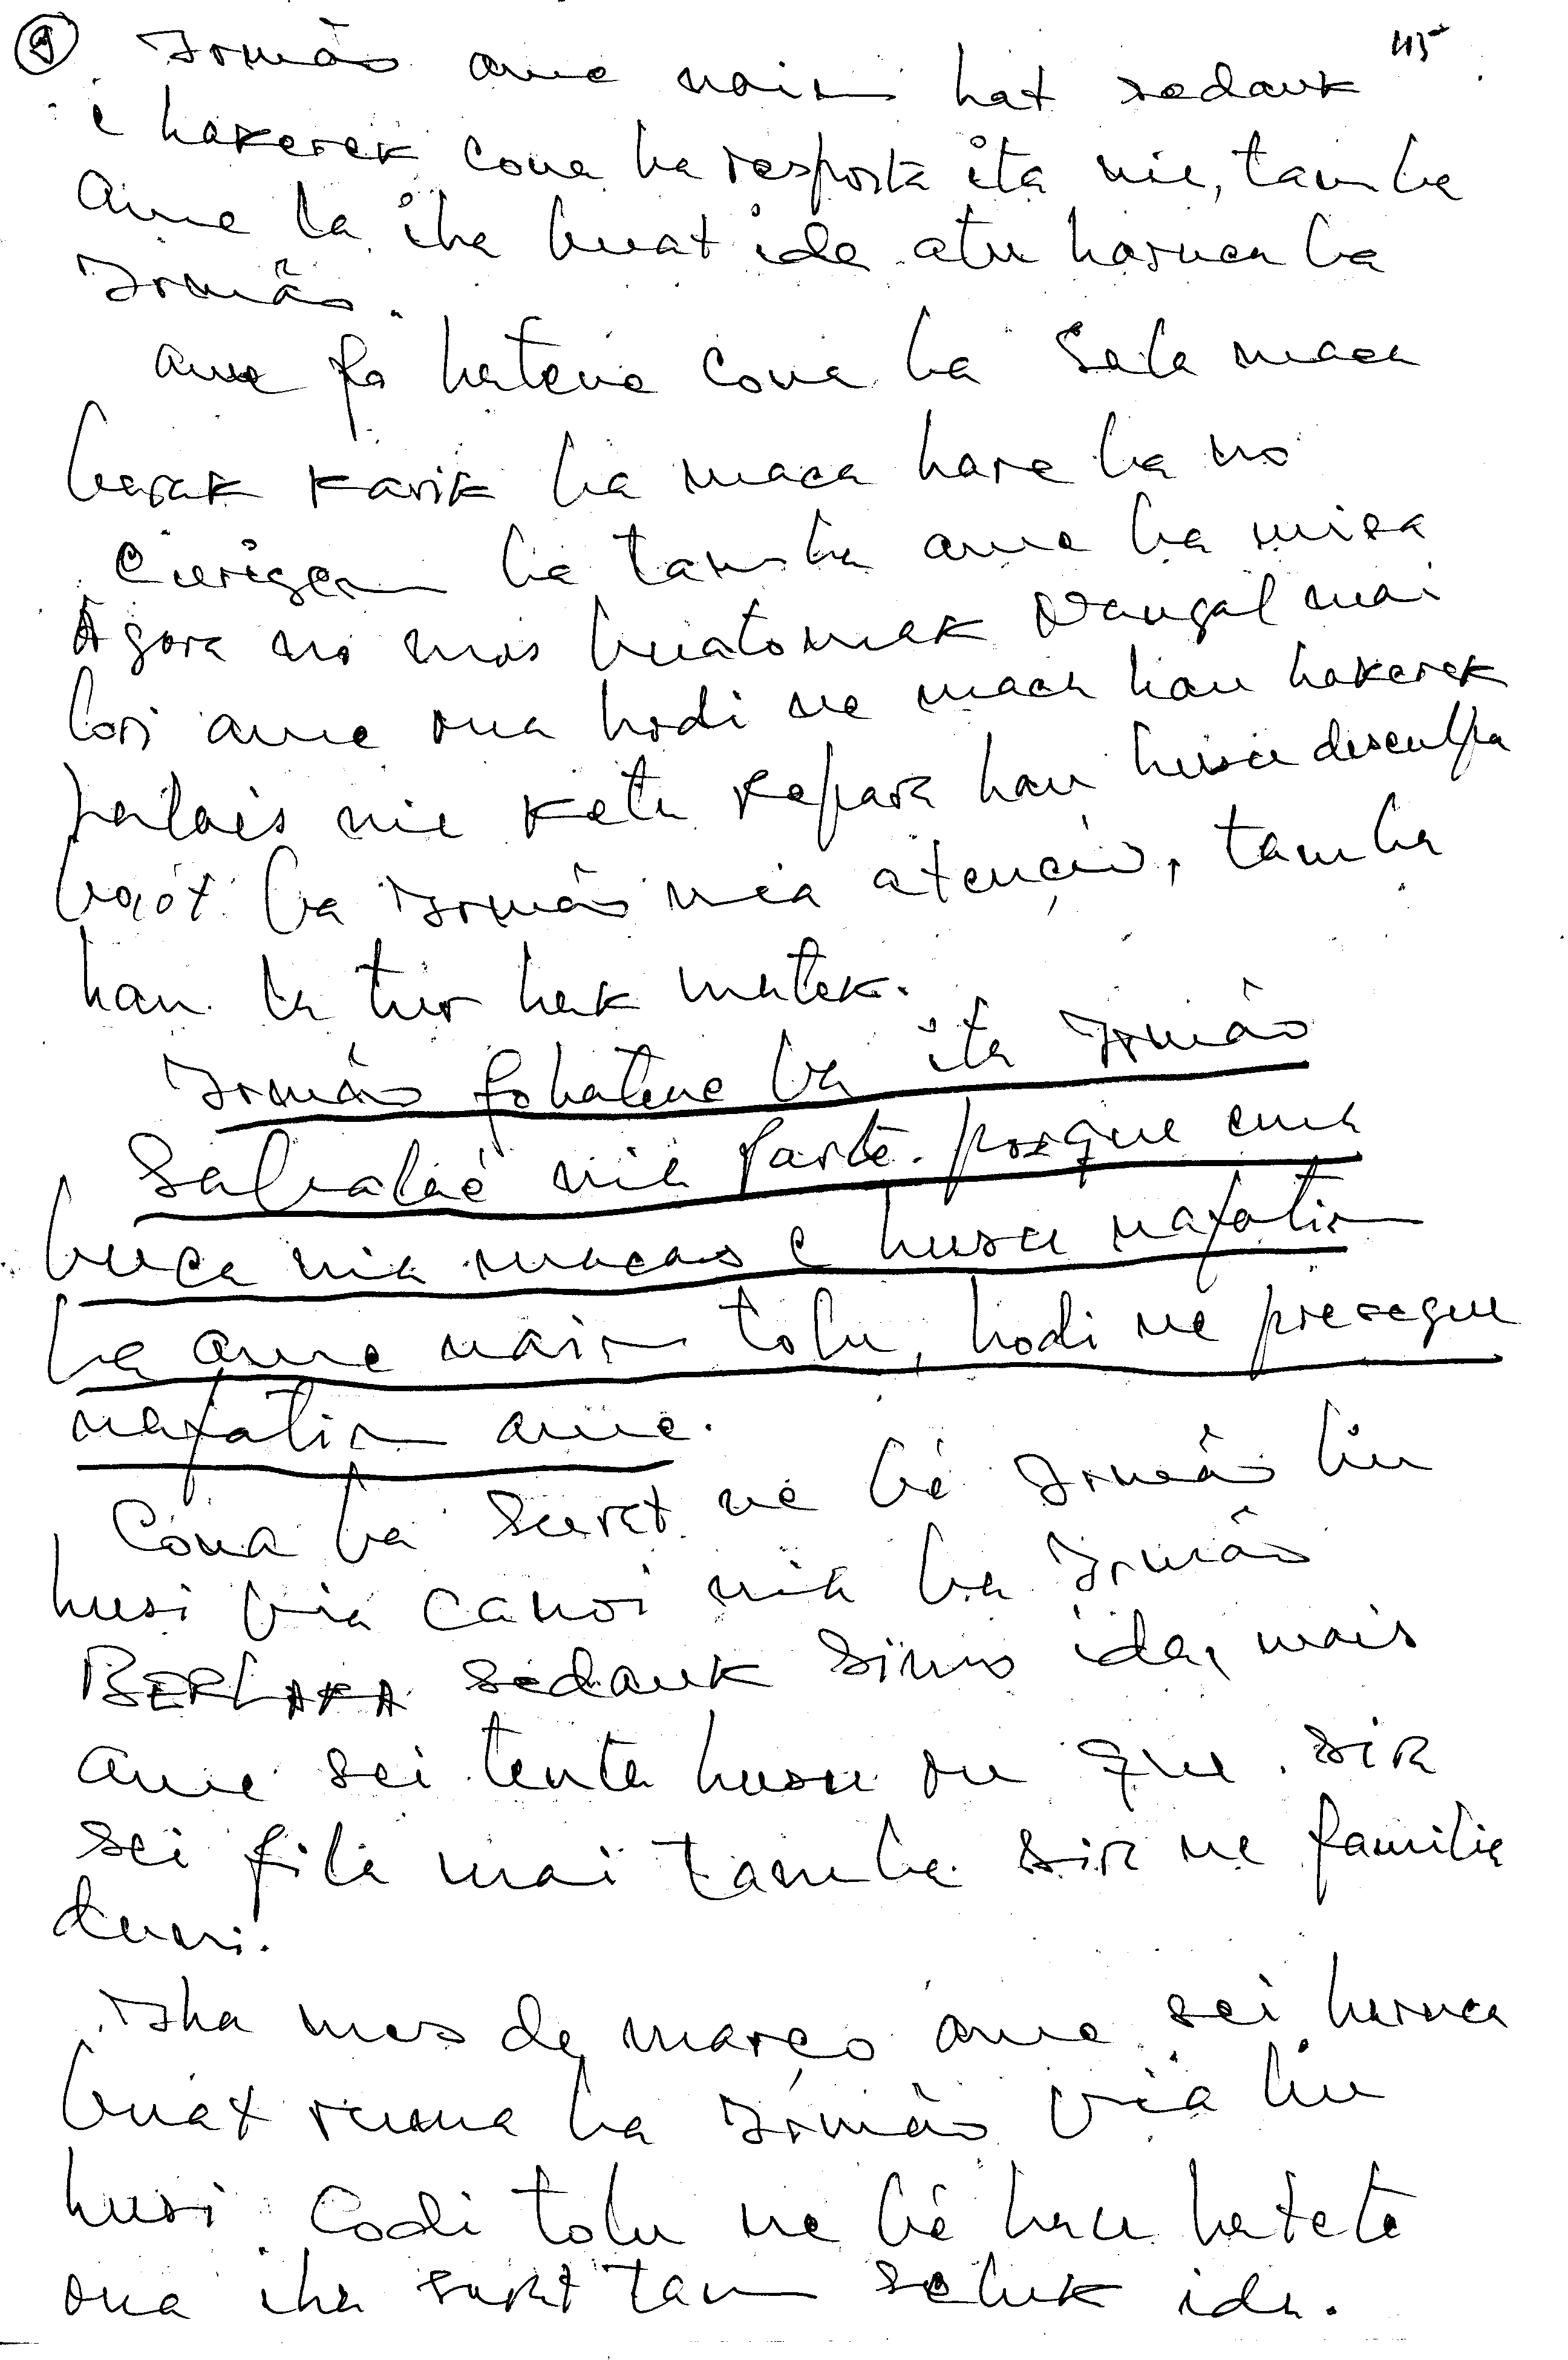 9 Irmão ame nain hat sedauk 115
i hakerek cona ba resposta ita nia, tamba
ame la iha buat ida atu haruca ba
Irmão.
ame fo hatene cona ba sala maca
barak karik ba maca hare ba no
corigem ba tamba ame ba misa
Agora no mos buatomak Nangal mai
lori ame rua hodi ne maca hau hakerek
palais nie keta repara hau husu desculpa
boót ba Irmão nia atenção, tamba
hau la tur hak matek.
Irmão fohatene ba ita Irmão
Sabalaé nia parte. porque ema
buca nia macas e husu nafatin
ba ame nain tolu, hodi ne presegue
nafatin ame.
Cona ba surat ne bé Irmão liu
husi via canoi nia ba Irmão
BERLAKA sedauk simo ida, mais
ame sei tenta husu ou que sira
sei fila mai tamba sira ne familia
duni.
Iha mes de março ame sei haruca
buat ruma ba Irmão via liu
husi Codi tolu ne bé hau hateta
ona iha surat tan seluk ida.